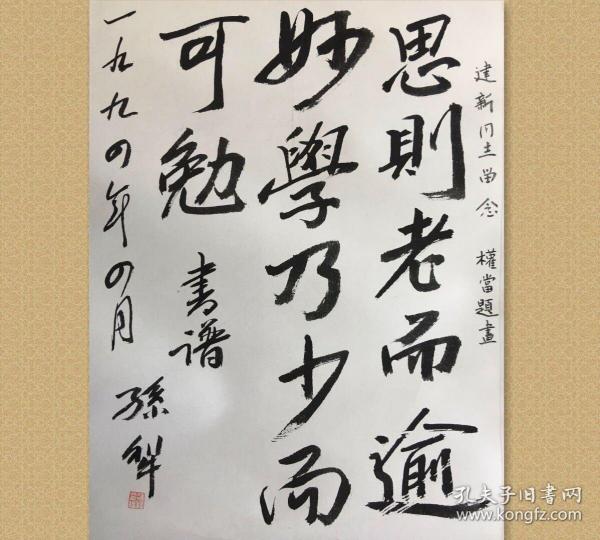 建新同志留念 權當題畫
思則老而逾
妙學乃少而
可勉 書谱
一九九四年四月 孫犁
孔夫子旧书网
www.kongfz.com